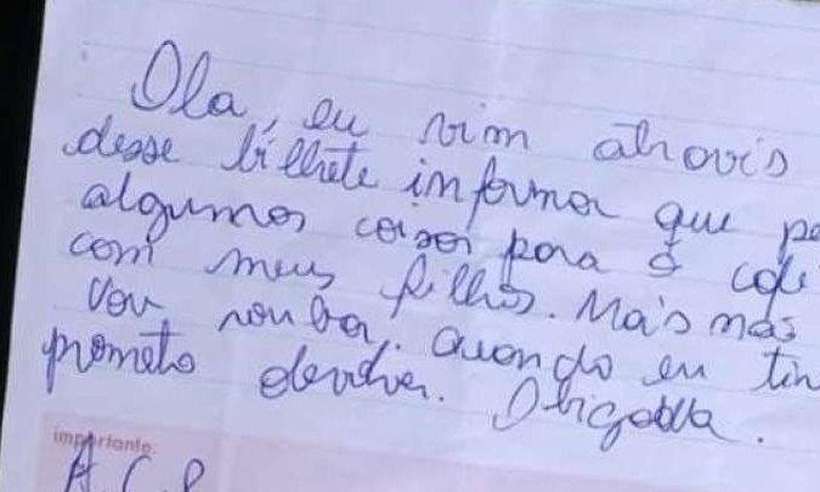 Ola, eu vim através
desse bilhete informar que pe
algumas coisas para o café
com meus filhos. Mais mas
vou roubar. Quando eu tin
prometo devolver. Obrigada.
importante:
A.C.P